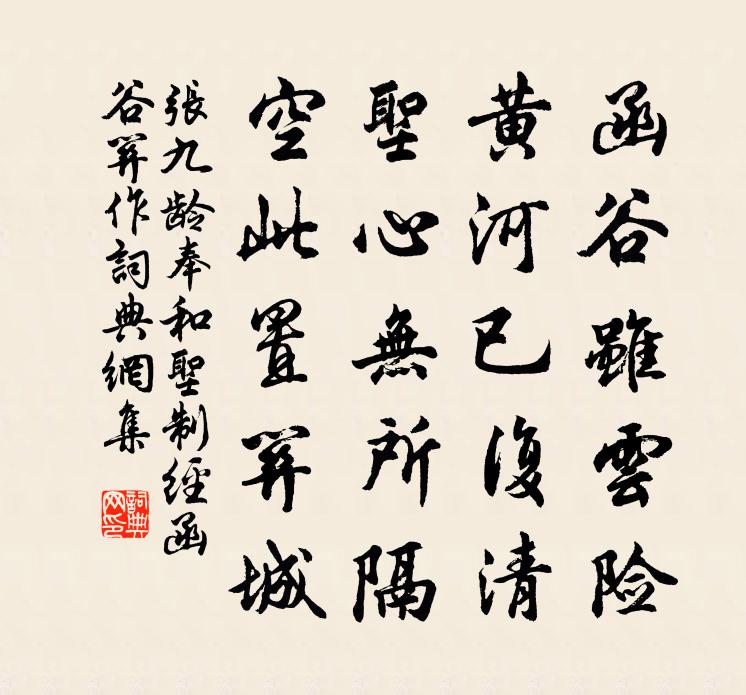 函谷雖雲险
黄河已復清
聖心無所隔
空此置関城
張九龄奉和聖制經函
谷関作詞典網集
詞典
网印